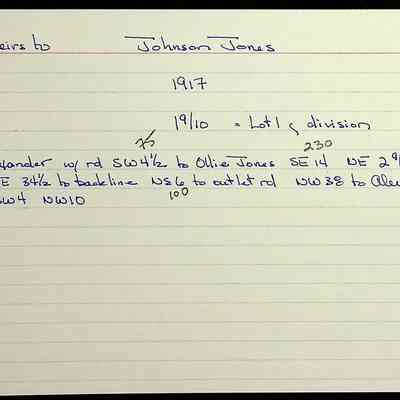 eirs to Johnson Jones
1917
19/10 = Lot 1 division
75 230
xander w/ rd SW 4½ to Ollie Jones SE 14 NE 2
E 34½ to backline NS 6 to outlet rd NW 38 to Alex
100
SW 4 NW 10